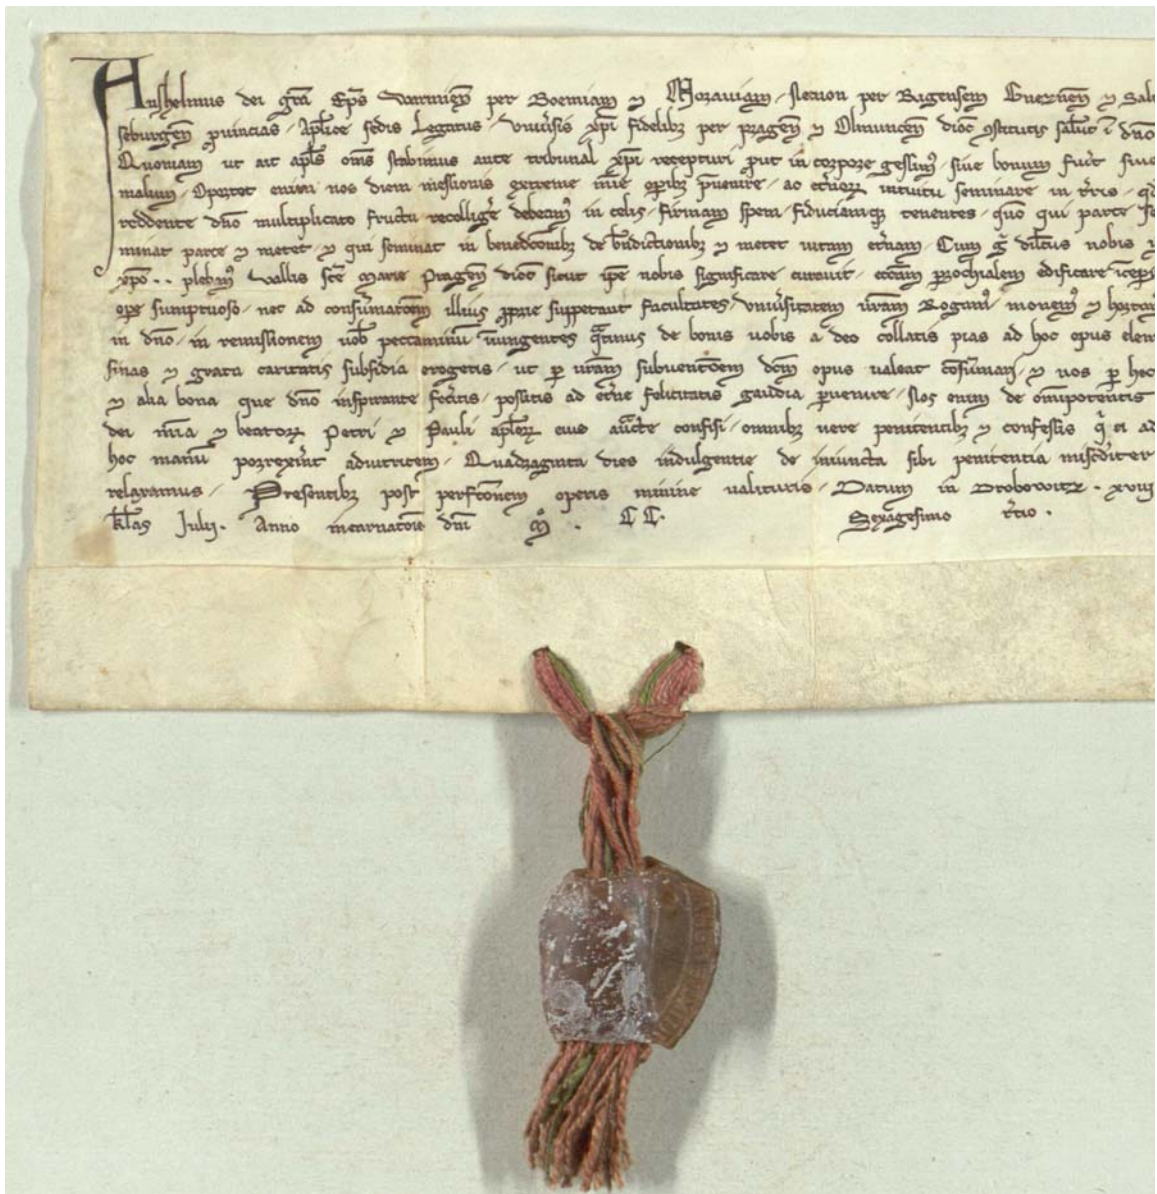 Anshelmus dei gr̄a Ep̄s Warmieñ per Boemiam ⁊ Morauiam, necnon per Rigensem Gneznen̄ ⁊ Salc
seburgen̄ ꝓuincias, Apl̄ice sedis Legatus, vniu̾sis xp̄i fidelibꝫ per pragen̄ ⁊ Olmucen̄ dioc̄ ꝯstitutis sal̄ut ī dn̄o
Quoniam ut ait apl̄s om̄s stabimus ante tribunal xp̄i recepturi ꝓut in corpore gessim᷒, siue bonum fuīt siue
malum, Oportet enim nos diem messionis extreme mīe oꝑibꝫ p̄uenire, ac et̄norꝝ intuitu seminare in t̄ris, qd̄
reddente dn̄o multiplicato fructu recollig̾e debeam᷒ in celis, firmam spem fiduciamqꝫ tenentes, qm̄o qui parce se
minat parce ⁊ metet, ⁊ qui seminat in bened̄cōnibꝫ de bn̄dictionibꝫ ⁊ metet uitam et̄nam, Cum g̊ dil̄cus nobis ī
xp̄o . . pleban᷒ vallis sc̄e Marie Pragen̄ dioc̄ sicut ip̄e nobis significare curauit, eccl̄am ꝑrochialem edificare īceꝑ̄
oꝑe sumptuoso, nec ad consum̄acōem illius ꝓprie suppetant facultates, vniu̾sitatem ur̄am Rogam᷒, monem᷒ ⁊ hortam᷒
in dn̄o, in remissionem uob̄ peccaminū iniungentes q̄tinus de bonis uobis a deo collatis pias ad hoc opus elem
sinas ⁊ grata caritatis subsidia erogetis, ut ꝑ ur̄am subuencōem dc̄m opus ualeat cōsum̄ari, ⁊ uos ꝑ hec
⁊ alia bona que dn̄o inspirante fec̾itis, possitis ad et̄ne felicitatis gaudia ꝑuenire, Nos enim de om̄ipotentis
dei mīa ⁊ beatorꝝ Petri ⁊ Pauli apl̄orꝝ eius auc̄te confisi, omnibꝫ uere penitentibꝫ ⁊ confessis q̊ ei ad
hoc manū porrexīnt adiutricem, Quadraginta dies indulgentie de iniuncta sibi penitentia misc̾dit̾er
relaxamus, Presentibꝫ post perfc̄onem operis minime ualituris, Datum in Drobowitz . xviij
kl̄as Julij . Anno incarnacōis dn̄i M̊ . C C . Sexagesimo t̄cio .